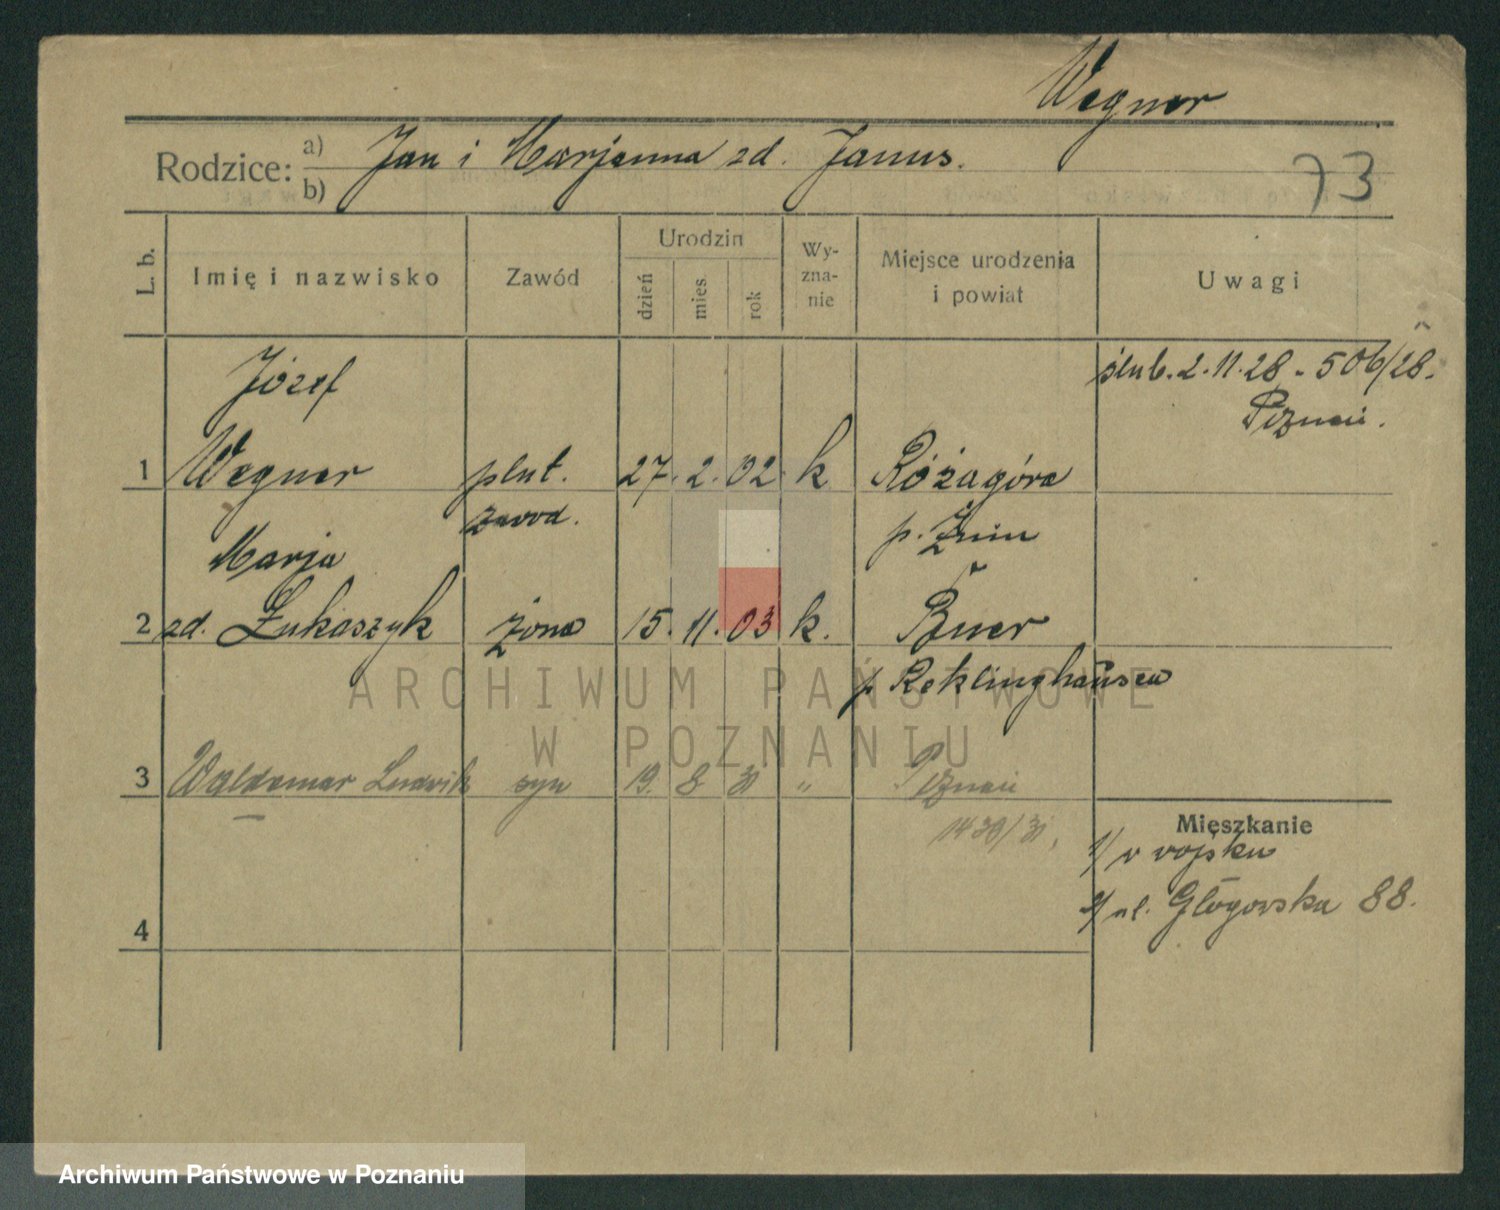 Wegner
Rodzice: a) Jan i Marjanna zd. Janus.
b)
73
L. b. Imię i nazwisko Zawód Urodzin dzień mies. rok Wy-zna-nie Miejsce urodzenia i powiat Uwagi
Józef
ślub. 2.11.28 - 506/28.
Poznań.
1 Wegner plut. 27. 2. 02 k Różagóra
zawod. p. Żnin
Marja
2 zd. Łukaszyk żona 15. 11. 03 k. Buer
p. Reklinghausen
3 Waldemar Ludwik syn 19. 8 31 " Poznań
1430/31,
Mieszkanie
1/ w wojsku
2/ ul. Głogowska 88.
4
ARCHIWUM PAŃSTWOWE
W POZNANIU
Archiwum Państwowe w Poznaniu